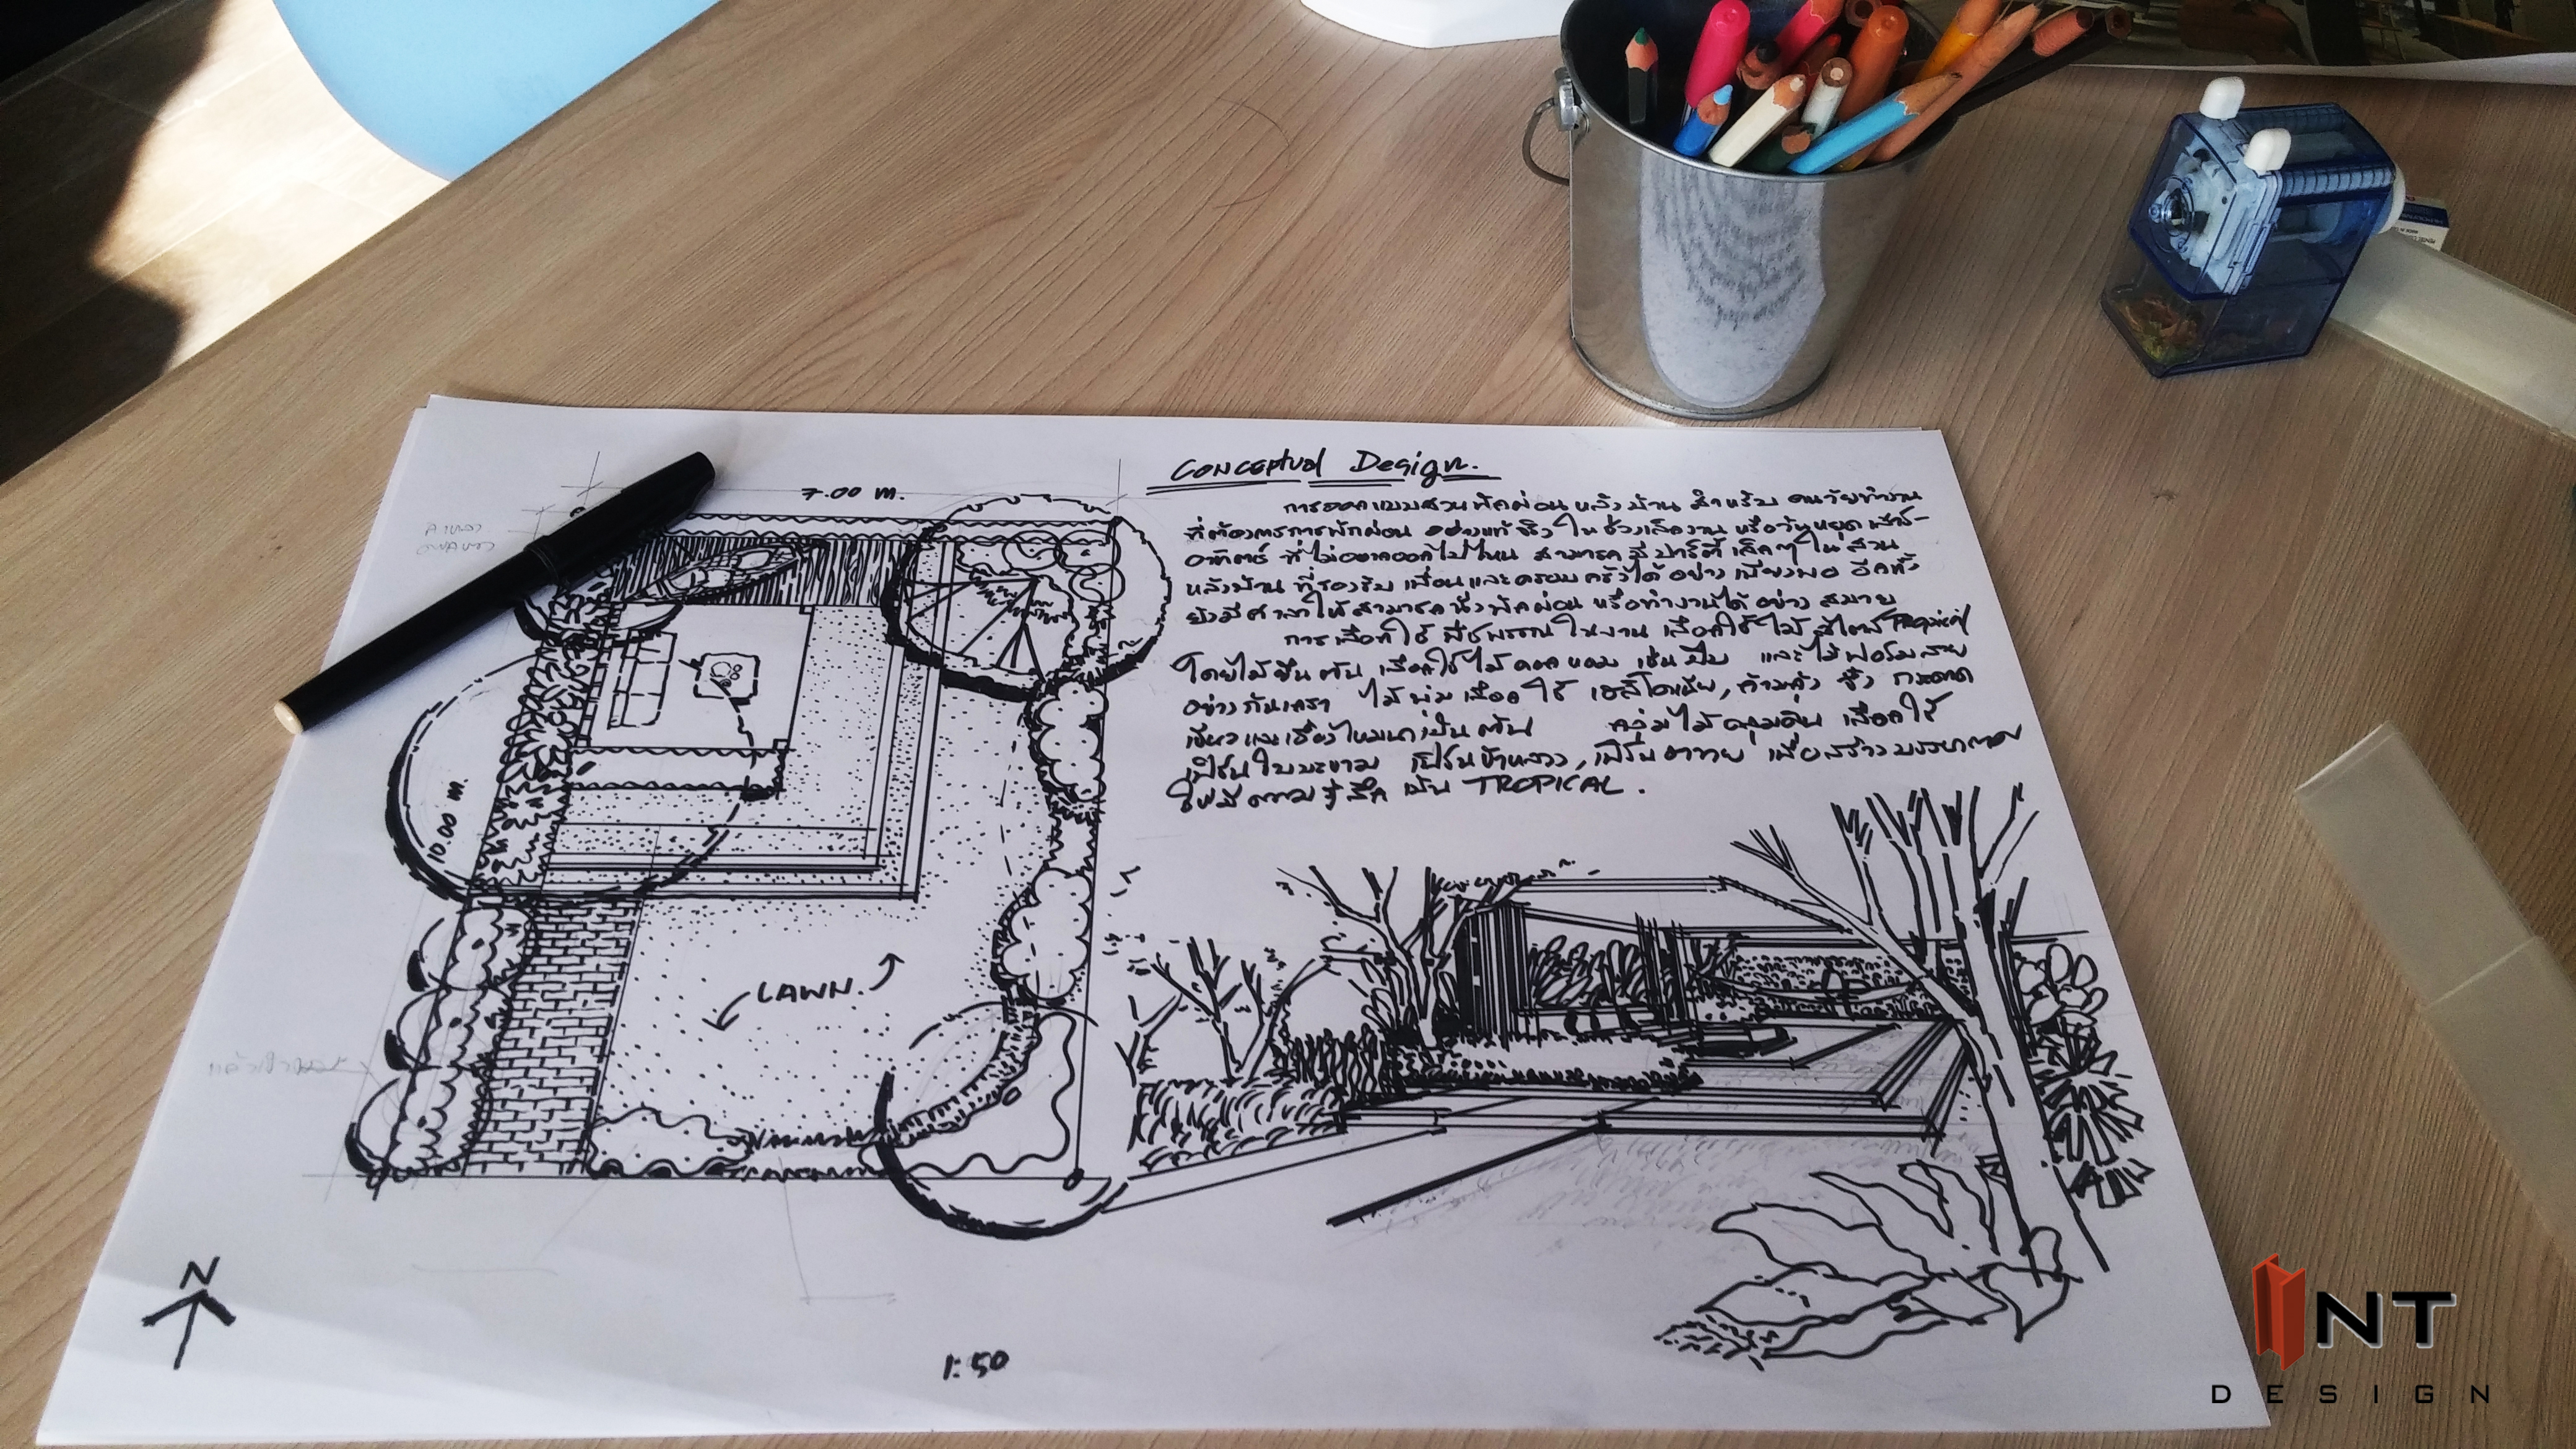 Conceptual Design.
7.00 m.
การออกแบบสวนพักผ่อน หลังบ้าน สำหรับ คนวัยทำงาน
ที่ต้องการการพักผ่อน อย่างแท้จริง ในช่วงเลิกงาน หรือวันหยุด เสาร์-
อาทิตย์ ที่ไม่อยากออกไปไหน สามารถ มีปาร์ตี้ เล็กๆ ใน สวน
หลังบ้าน ที่รองรับ เพื่อนและครอบครัวได้ อย่าง เพียงพอ อีกทั้ง
ยังมีศาลาให้สามารถนั่งพักผ่อน หรือทำงานได้ อย่าง สบาย
การเลือกใช้ พืชพรรณ ในงาน เลือกใช้ ไม้ สไตล์ Tropical
โดยไม้ยืนต้น เลือกใช้ ไม้ดอกหอม เช่น ปีบ และไม้ฟอร์มสวย
อย่างกันเกรา ไม้พุ่ม เลือก ใช้
เป็นต้น กลุ่มไม้คลุมดิน เลือกใช้
เฟิร์นใบมะขาม เฟิร์นข้าหลวง, เฟิร์น เพื่อสร้างบรรยากาศ
ให้มีความรู้สึก เป็น TROPICAL.
10.00 m.
LAWN.
N
1:50
INT
DESIGN